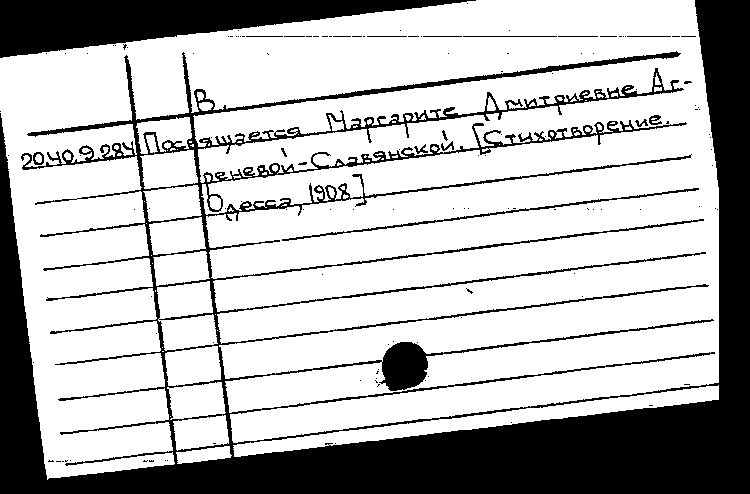 В.
20.40.9.284 Посвящается Маргарите Дмитриевне Аг-
реневой-Славянской. [Стихотворение.
Одесса, 1908]